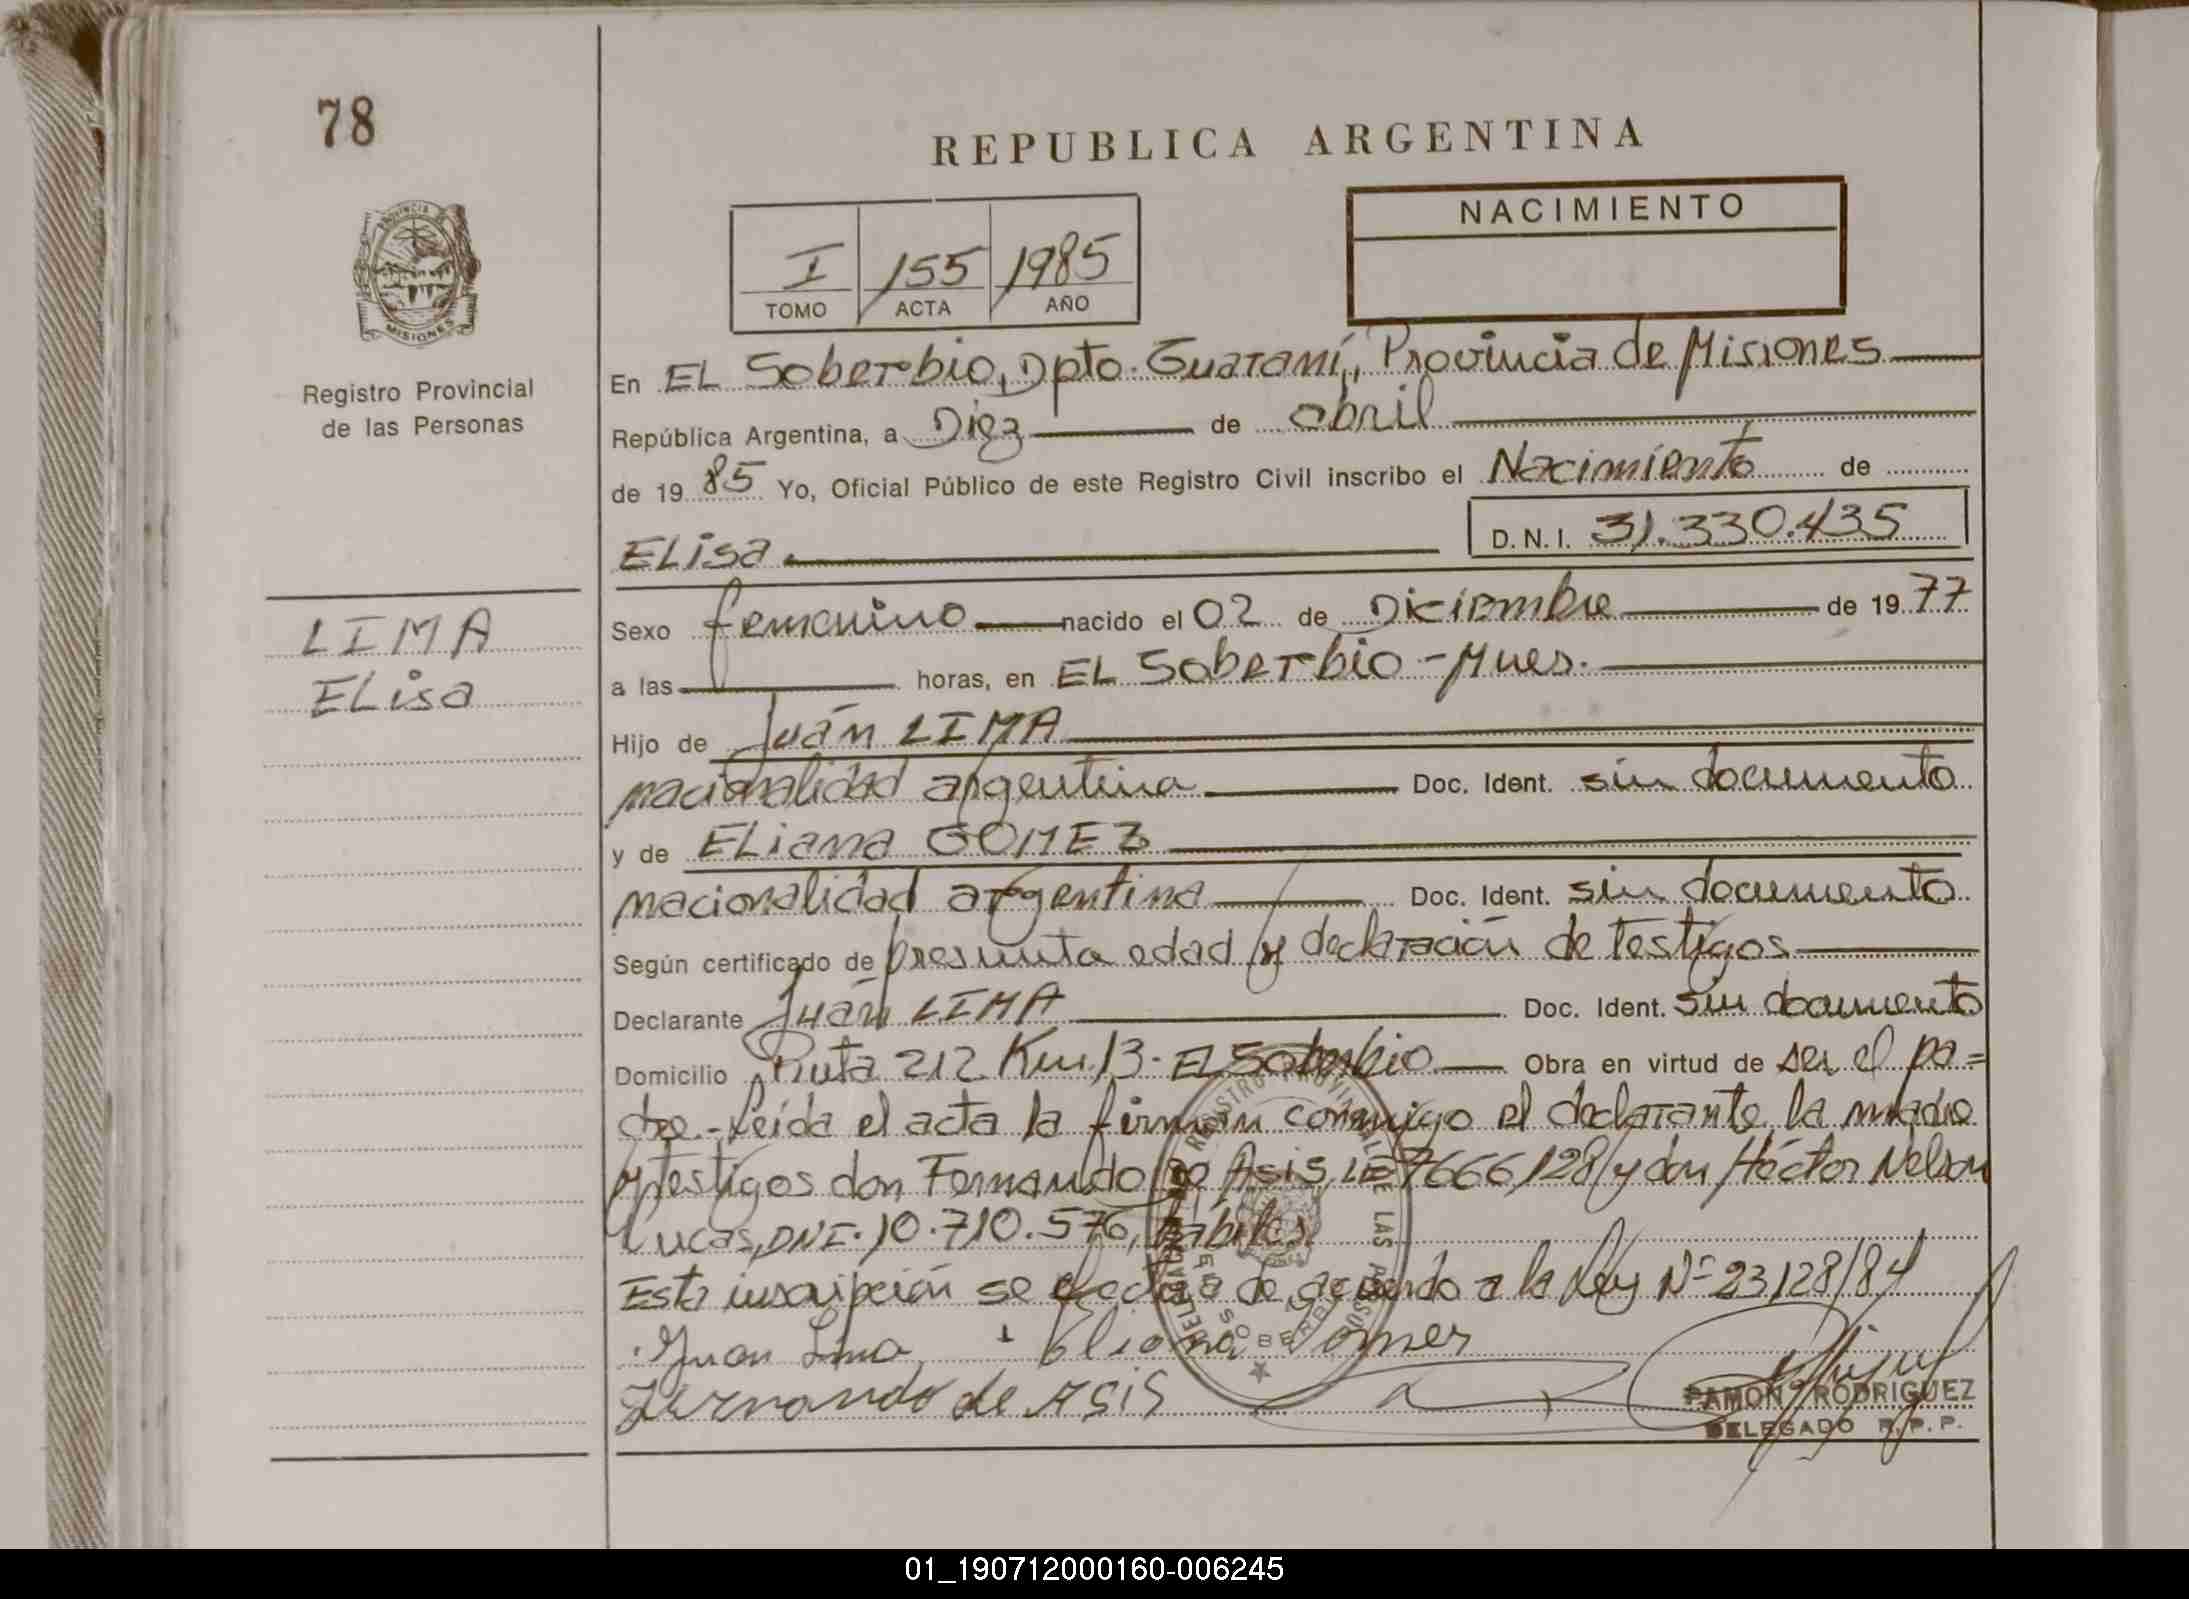 78
PROVINCIA DE
MISIONES
Registro Provincial
de las Personas
LIMA
ELisa
REPUBLICA ARGENTINA
I 155 1985
TOMO ACTA AÑO
NACIMIENTO
En EL Soberbio, Dpto. Guaraní, Provincia de Misiones
República Argentina, a Diez de abril
de 19 85 Yo, Oficial Público de este Registro Civil inscribo el Nacimiento de
ELisa D.N.I. 31.330.435
Sexo femenino nacido el 02 de Diciembre de 19 77
a las horas, en EL Soberbio - Mnes.
Hijo de Juán LIMA
nacionalidad argentina Doc. Ident. sin documento
y de ELiana GOMEZ
nacionalidad argentina Doc. Ident. sin documento
Según certificado de presunta edad y declaración de testigos
Declarante Juán LIMA Doc. Ident. sin documento
Domicilio Ruta 212 Km 13 - El Soberbio Obra en virtud de ser el pa=
dre.- Leída el acta la firman conmigo el declarante, la madre
y testigos don Fernando de Asis, LE 7666,128 y don Héctor Nelson
Lucas, DNI. 10.710.576, hábiles.
Esta inscripción se efectúa de acuerdo a la Ley Nº 23128/84
Juan Lima Eliana Gomes
Fernando de ASiS
RAMON RODRIGUEZ
DELEGADO R.P.P.
REGISTRO PROVINCIAL DE LAS PERSONAS
01_190712000160-006245